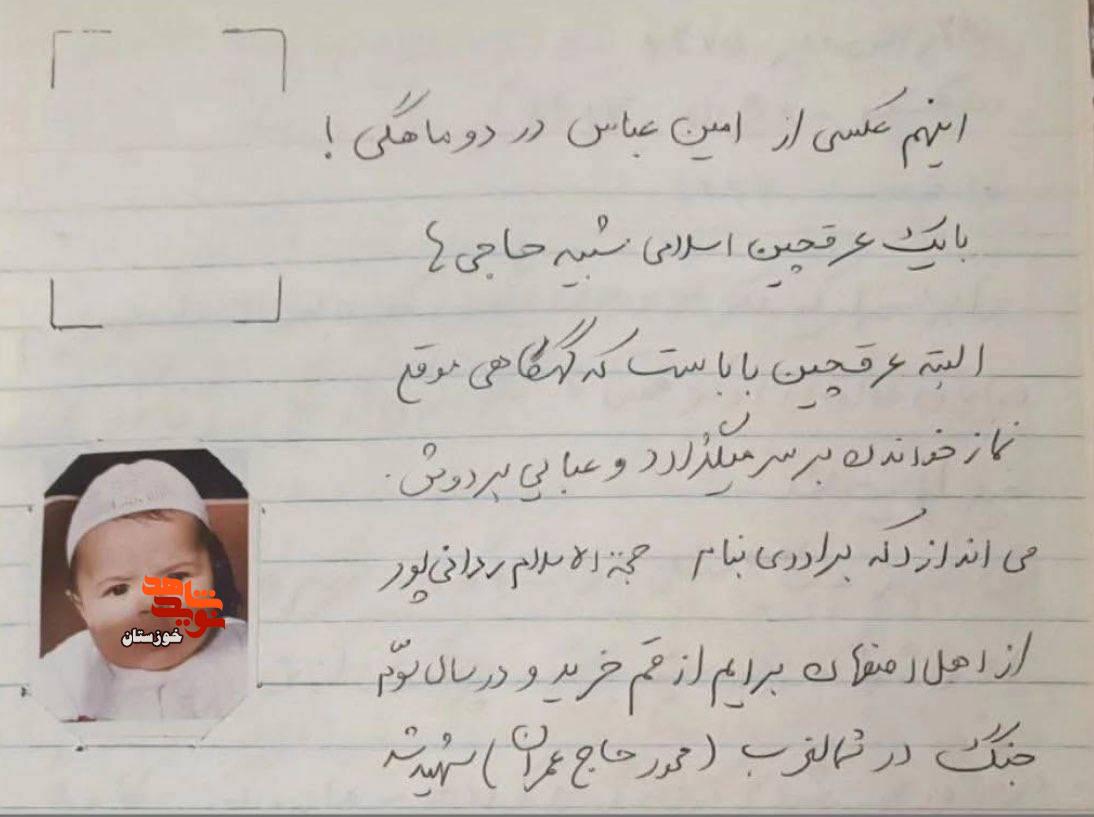 اینهم عکسی از امین عباس در دو ماهگی !
با یک عرقچین اسلامی شبیه حاجی ها
البته عرقچین باباست که گهگاهی موقع
نماز خواندن بر سر میگذارد و عبایی بر دوش
می اندازد که برادری بنام حجة الاسلام ردانی پور
از اهل اصفهان برایم از قم خرید و در سال سوّم
جنگ در شمالغرب (محور حاج عمران) شهید شد
نوید شاهد
خوزستان